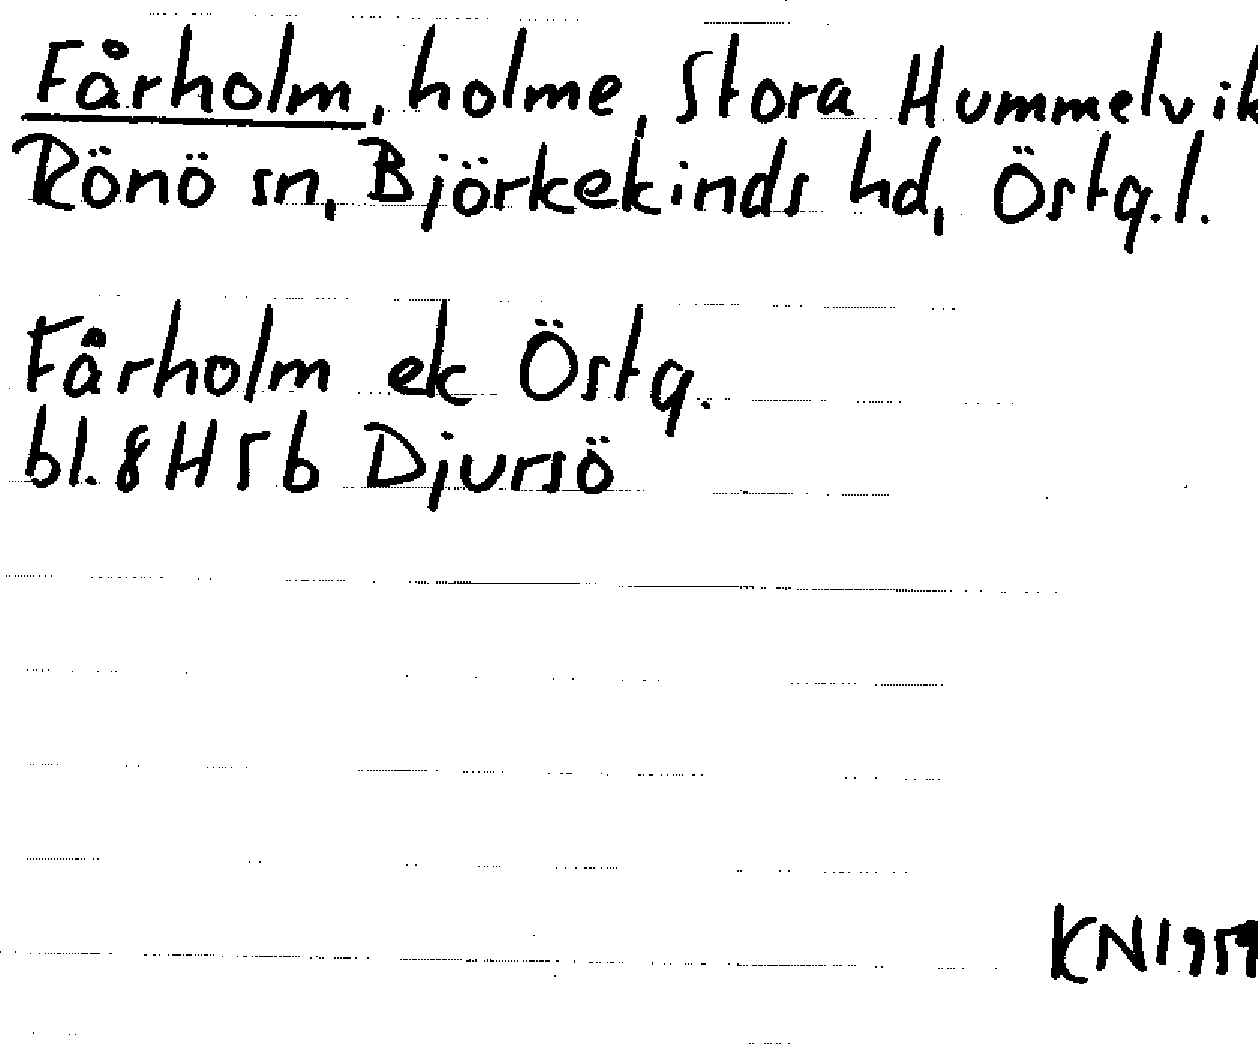 Fårholm, holme, Stora Hummelvik
Rönö sn, Björkekinds hd, Östg.l.
Fårholm ek Östg.
bl. 8H5b Djursö
KN1959